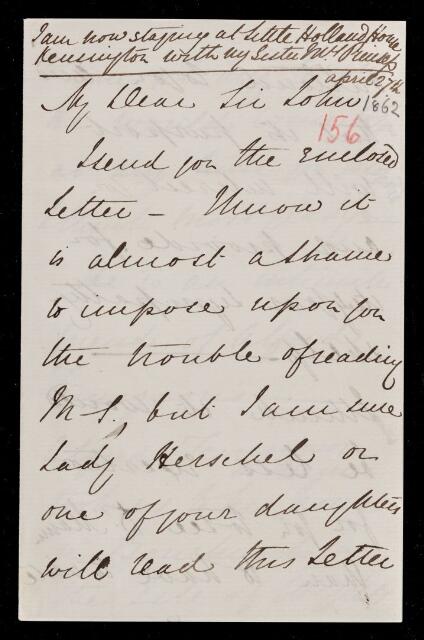 I am now staying at Little Holland House
Kensington with my Sister Mrs Prinsep
april 27th
1862
My Dear Sir John
156
I send you the enclosed
Letter – I know it
is almost a shame
to impose upon you
the trouble of reading
M S, but I am sure
Lady Herschel or
one of your daughters
will read this Letter